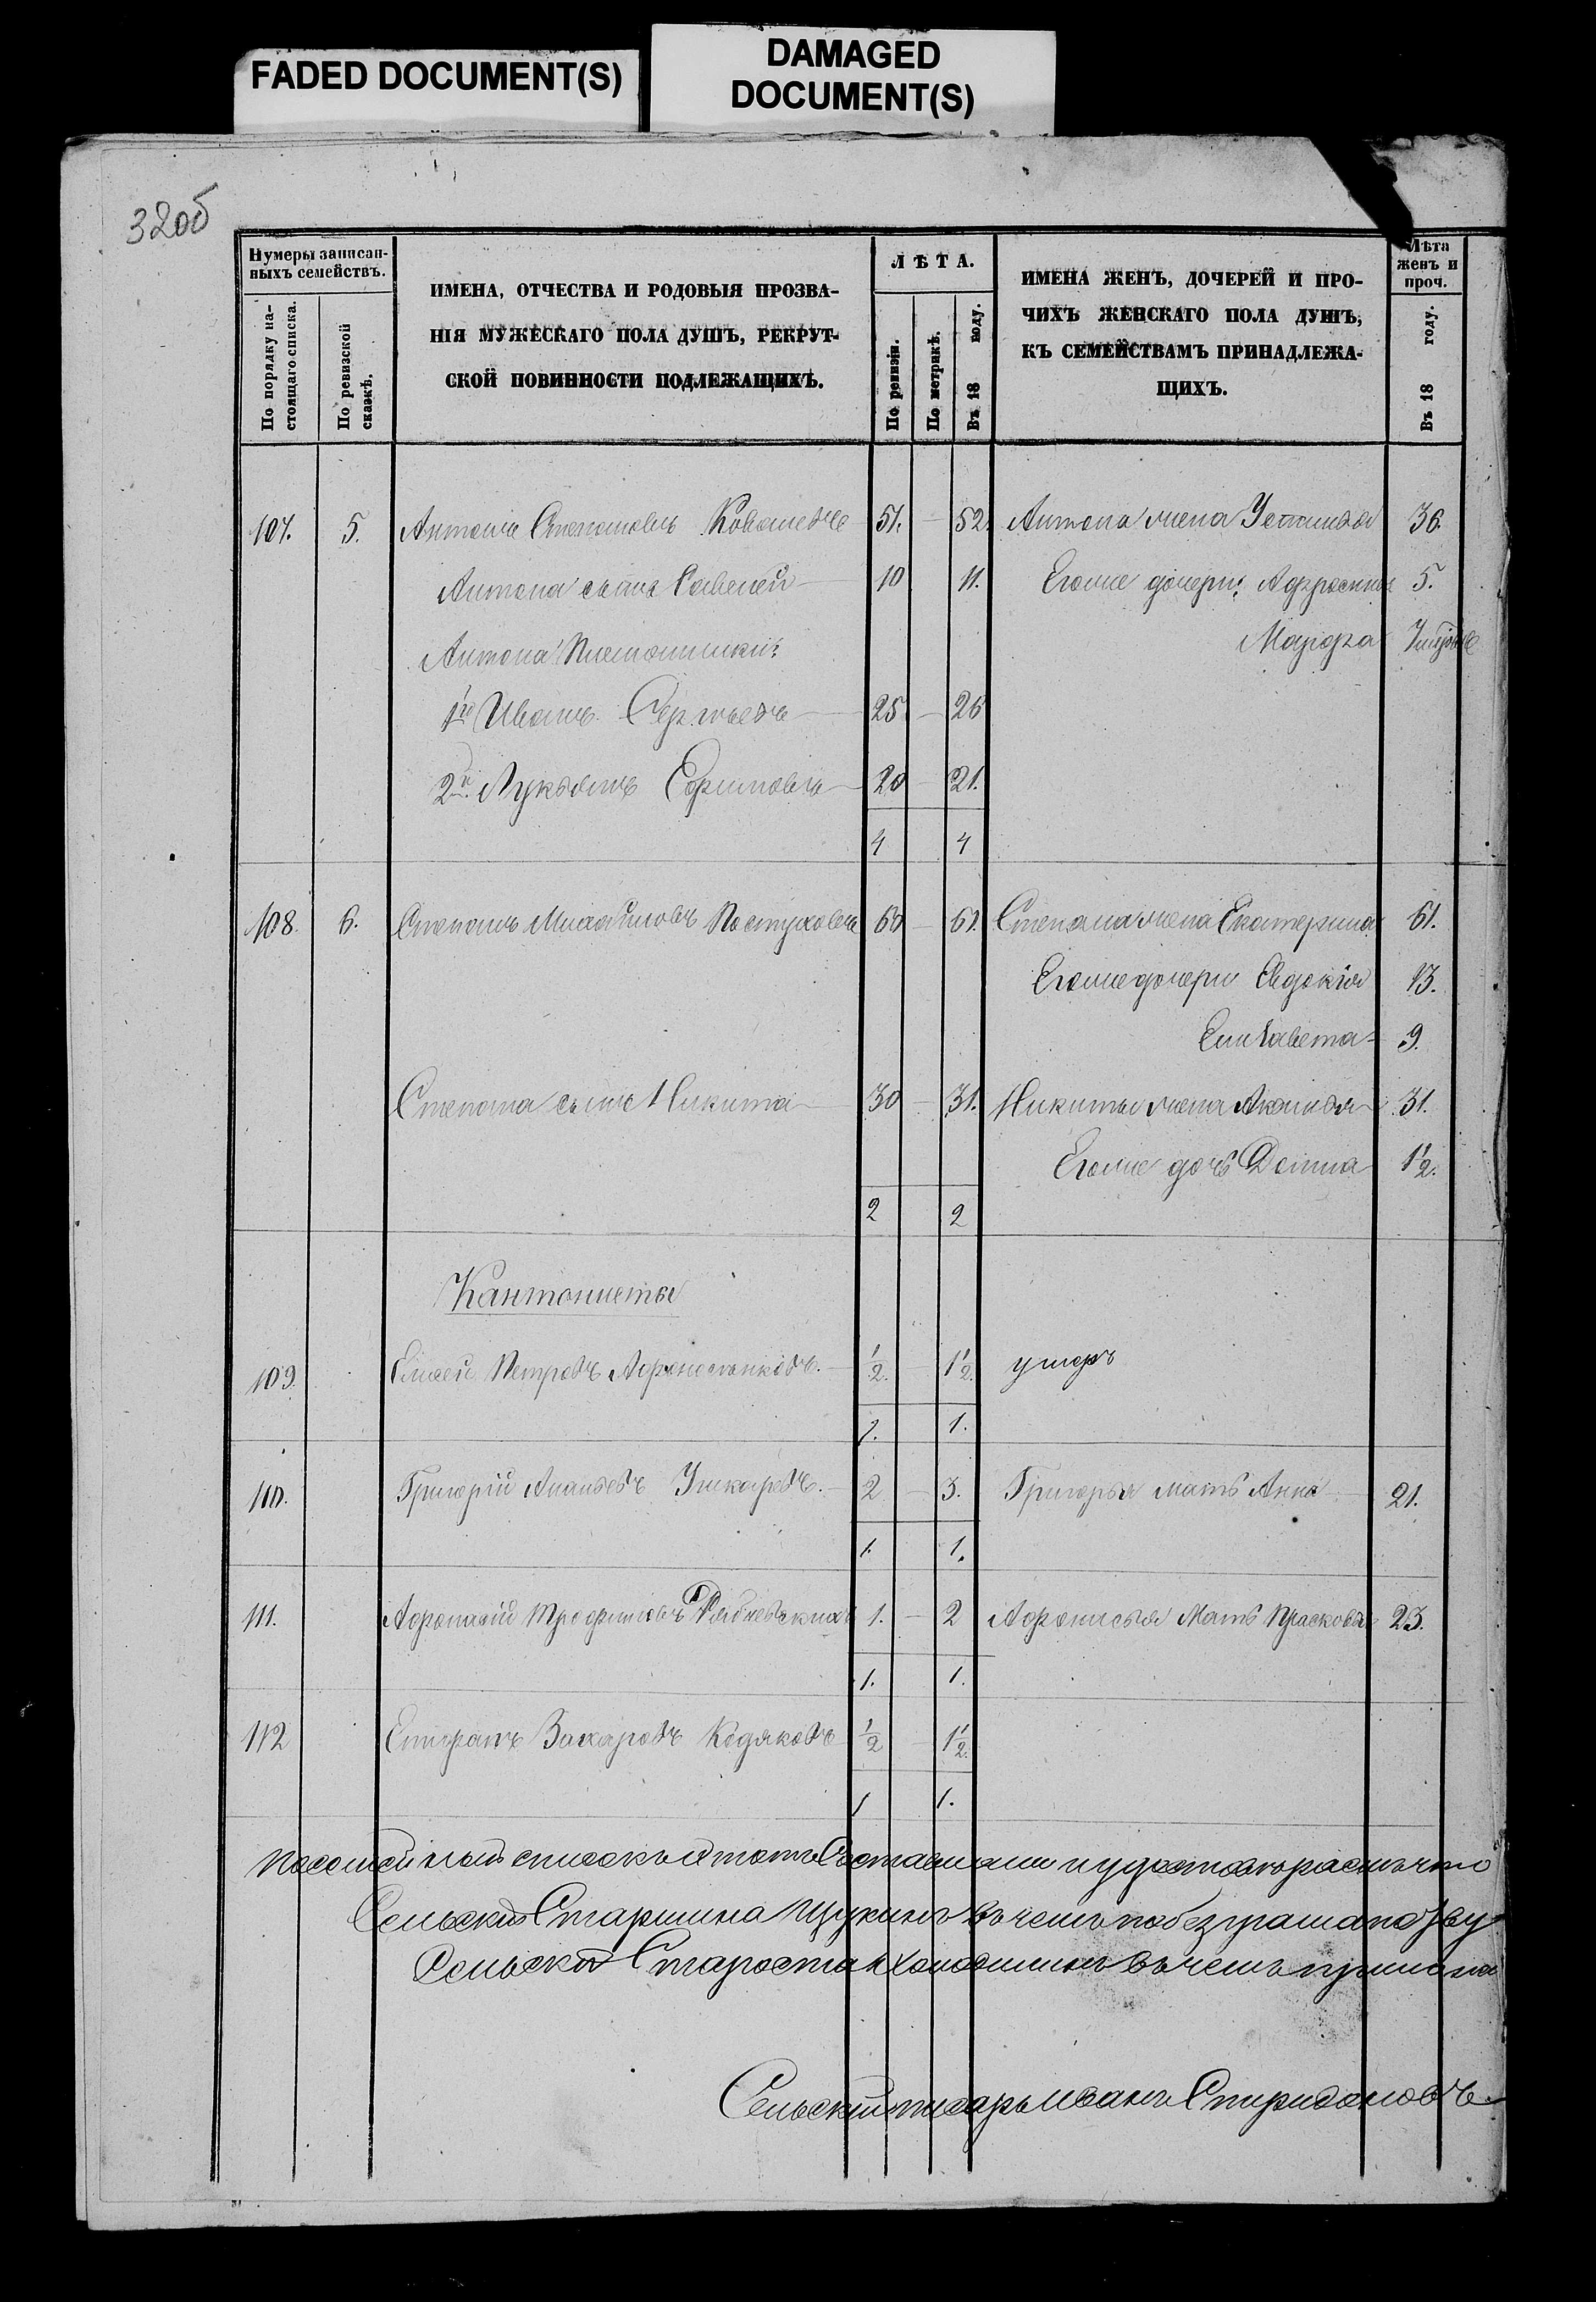 FADED DOCUMENT(S)
DAMAGED
DOCUMENT(S)
320б
Нумеры записан-
ныхъ семействъ.
По порядку на-
стоящаго списка.
По ревизской
сказкѣ.
ИМЕНА, ОТЧЕСТВА И РОДОВЫЯ ПРОЗВА-
НІЯ МУЖЕСКАГО ПОЛА ДУШЪ, РЕКРУТ-
СКОЙ ПОВИННОСТИ ПОДЛЕЖАЩИХЪ.
ЛѢТА.
По ревизіи.
По метрикѣ.
Въ 18 году.
ИМЕНА ЖЕНЪ, ДОЧЕРЕЙ И ПРО-
ЧИХЪ ЖЕНСКАГО ПОЛА ДУШЪ,
КЪ СЕМЕЙСТВАМЪ ПРИНАДЛЕЖА-
ЩИХЪ.
Лѣта
женъ и
проч.
Въ 18 году.
107. 5. Антонъ Степановъ 51. 52. Антона жена Устинья 36.
Антона сынъ Савелей 10 11. Егоже дочери: Афросинья 5.
Антона Племянники: Марфа
1й Иванъ Сергѣевъ 25 26
2й Лукьянъ Ефимовъ 20 21.
4 4
108. 6. Степанъ Михайловъ Пастуховъ 60 61. Степана жена Екатерина 61.
Егоже дочери Евдокія 13.
Елизавета 9.
Степана сынъ Никита 30 31. Никиты жена Акулина 31.
Егоже дочь Домна 1 1/2.
2 2
Кантонисты
109 Петровъ 1/2. 1 1/2. умеръ
1. 1.
110. Григорій Ананьевъ Ушкаревъ. 2 3. Григорья мать Анна 21.
1. 1.
111. Афонасій Трофимовъ 1. 2 Афонасья Мать Прасковья 23.
1. 1.
112 Епифанъ Захаровъ Кодяковъ 1/2 1 1/2.
1 1.
Посемейный списокъ
Сельский Старшина Щукинъ въ чемъ по безграма
Сельской Староста въ чемъ
Сельский писарь Иванъ Спиридоновъ